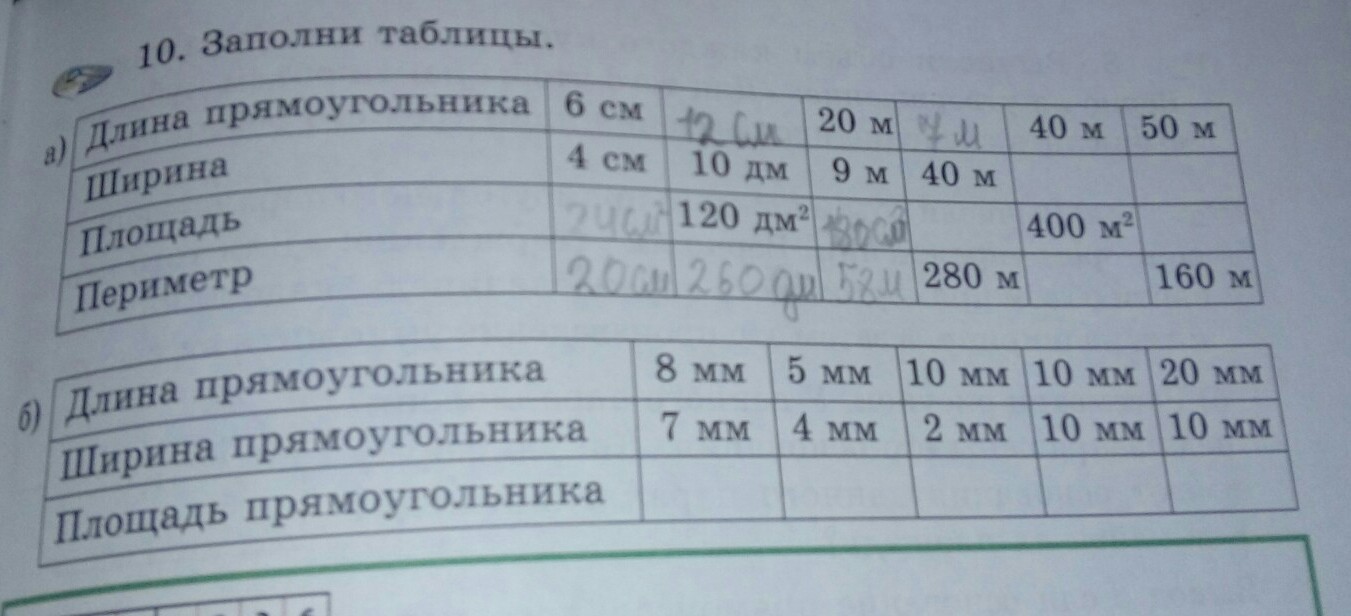 10. Заполни таблицы.
а) Длина прямоугольника 6 см 12 см 20 м 7 м 40 м 50 м
Ширина 4 см 10 дм 9 м 40 м
Площадь 24 см² 120 дм² 180 см² 400 м²
Периметр 20 см 260 дм 58 м 280 м 160 м
б) Длина прямоугольника 8 мм 5 мм 10 мм 10 мм 20 мм
Ширина прямоугольника 7 мм 4 мм 2 мм 10 мм 10 мм
Площадь прямоугольника